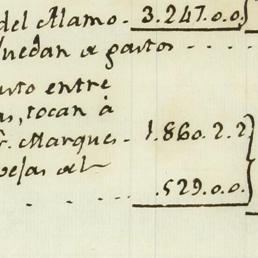 del Alamo - 3.247.0.0.
quedan a gastos - - - -
entre
as, tocan à
r. Marques - 1.860.2.2
vejas al
. . . . .529.0.0.